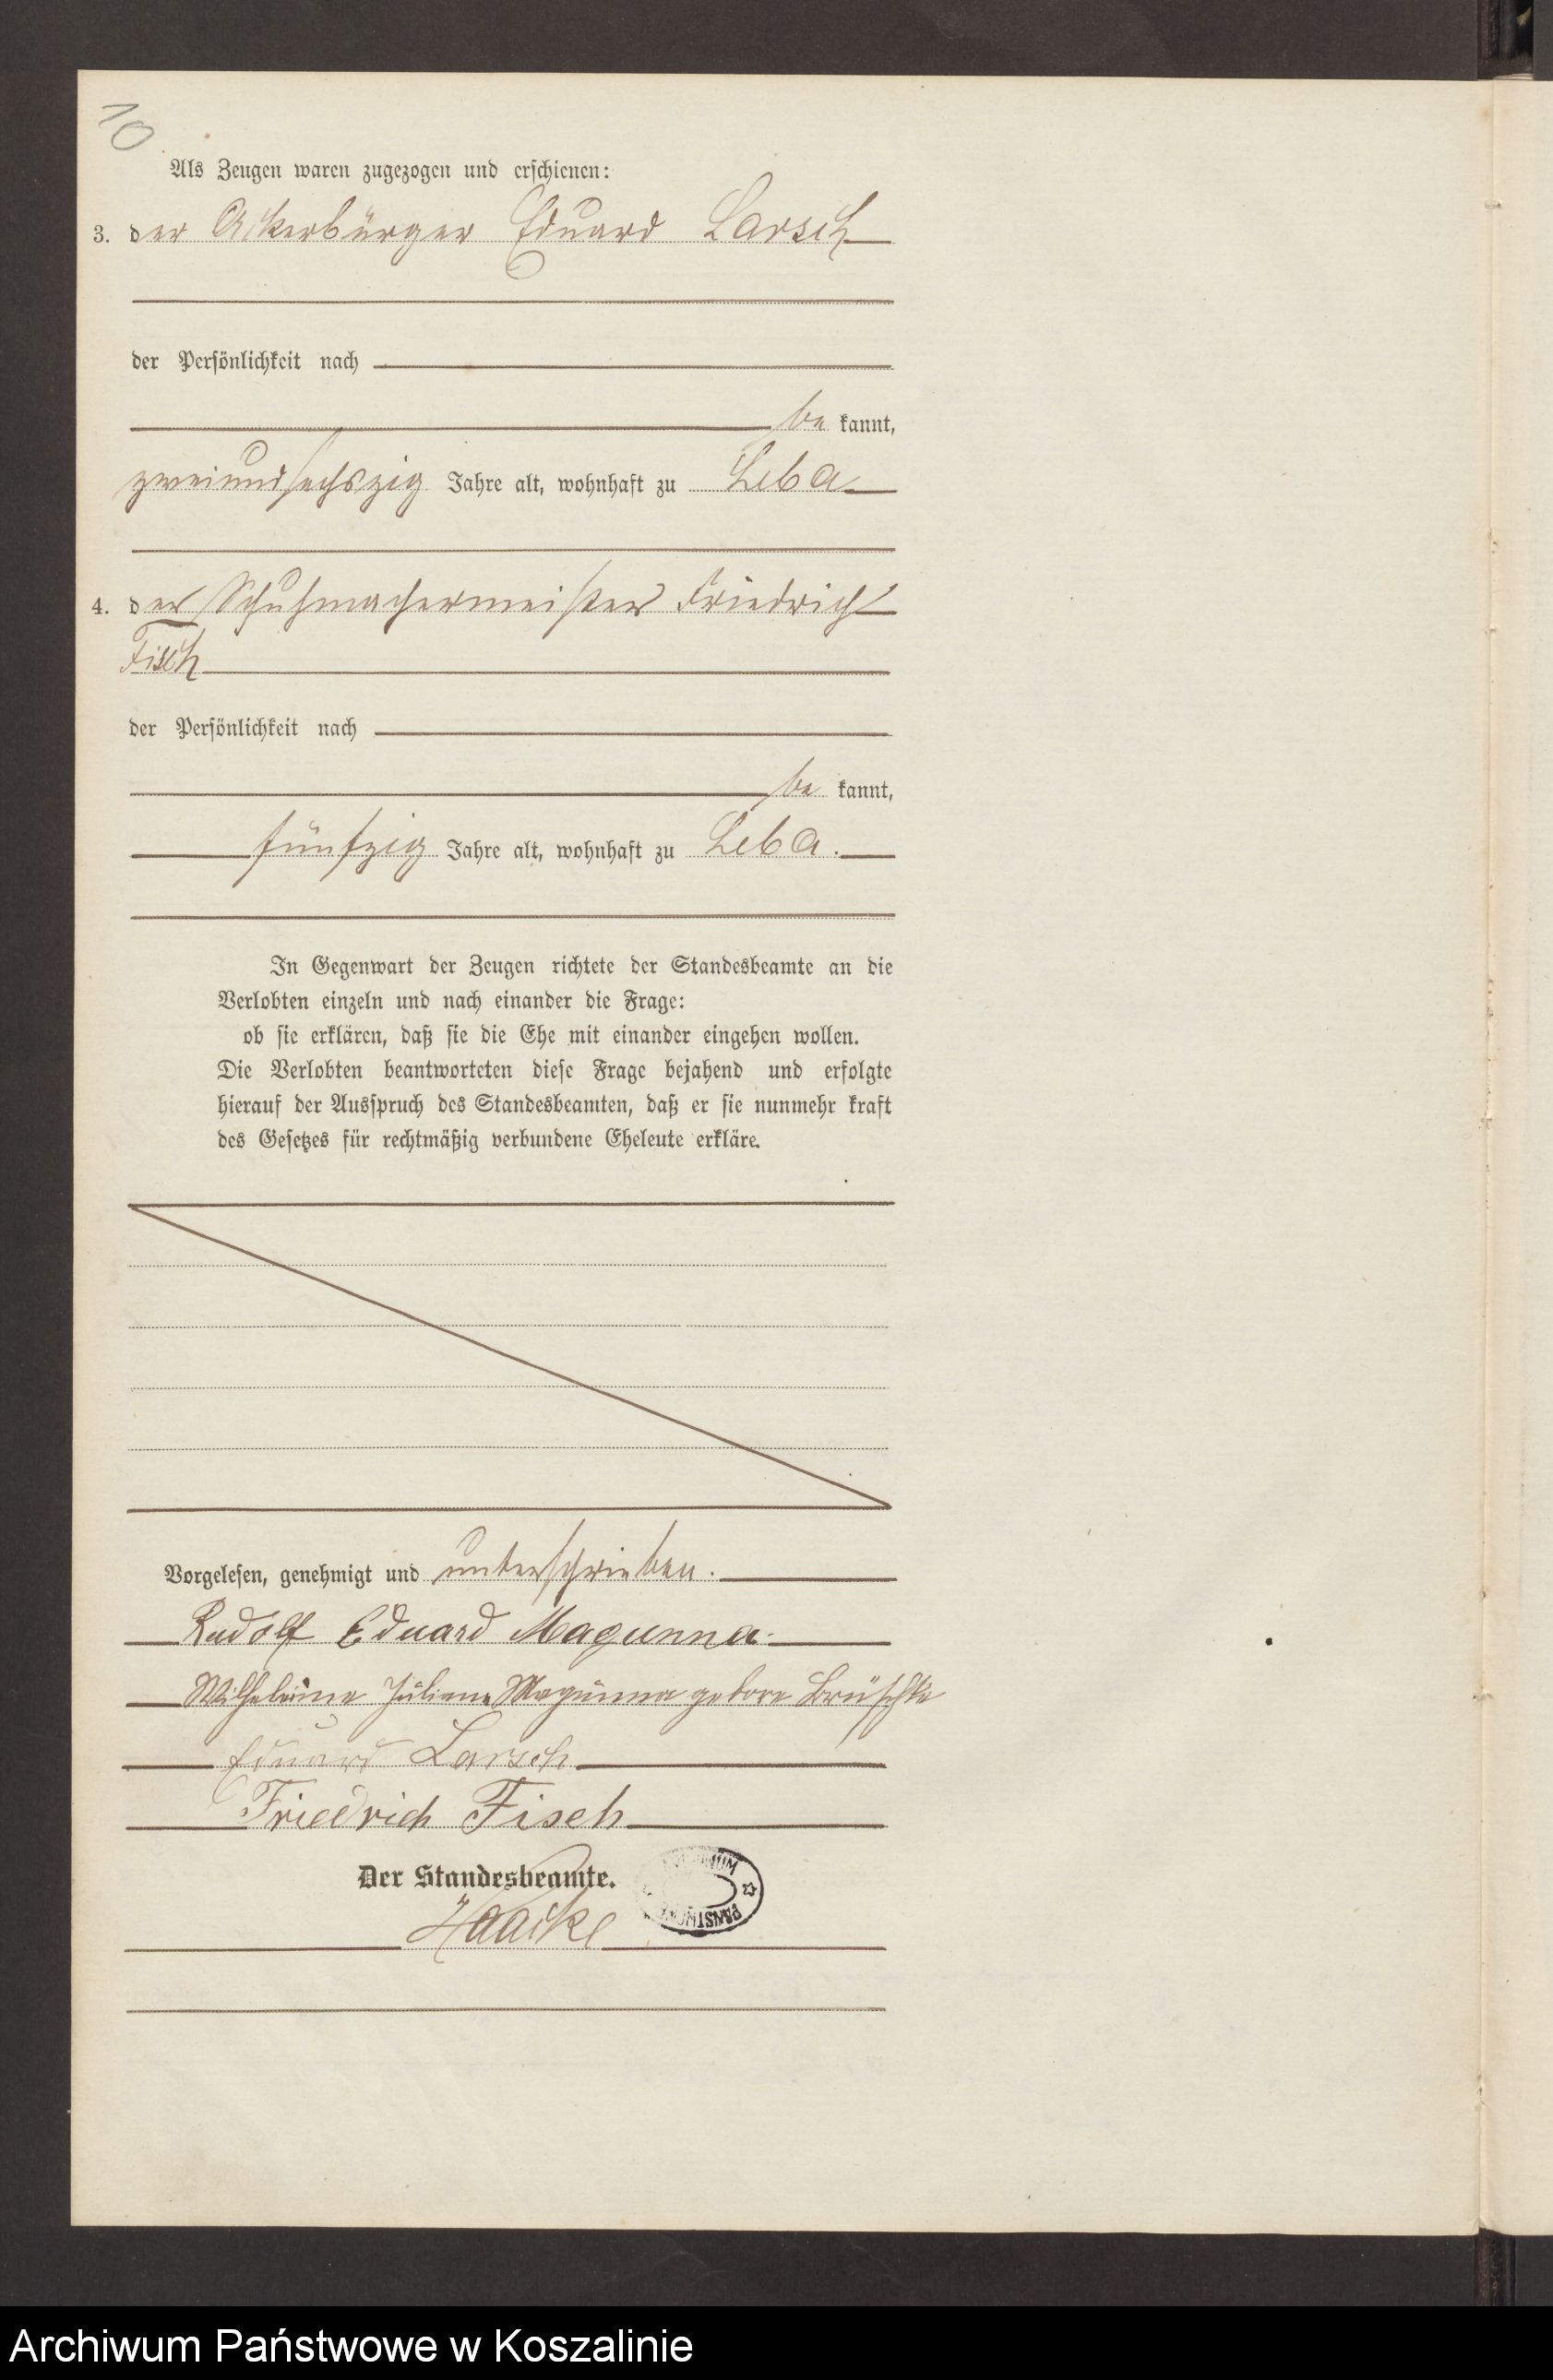 10
Als Zeugen waren zugezogen und erschienen:
3. der Ackerbürger Eduard Larsch
der Persönlichkeit nach
be kannt,
zweiundsechszig Jahre alt, wohnhaft zu Leba
4. der Schuhmachermeister Friedrich
Fisch
der Persönlichkeit nach
be kannt,
fünfzig Jahre alt, wohnhaft zu Leba.
In Gegenwart der Zeugen richtete der Standesbeamte an die
Verlobten einzeln und nach einander die Frage:
ob sie erklären, daß sie die Ehe mit einander eingehen wollen.
Die Verlobten beantworteten diese Frage bejahend und erfolgte
hierauf der Ausspruch des Standesbeamten, daß er sie nunmehr kraft
des Gesetzes für rechtmäßig verbundene Eheleute erkläre.
Vorgelesen, genehmigt und unterschrieben.
Rudolf Eduard Magunna.
Wilhelmine Juliane Magunna gebore Brüschke
Eduard Larsch
Friedrich Fisch
Der Standesbeamte.
Haacke
Archiwum Państwowe w Koszalinie